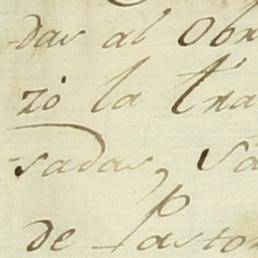 dar al Obr
zó la tra
sadas, Sa
de Pastor